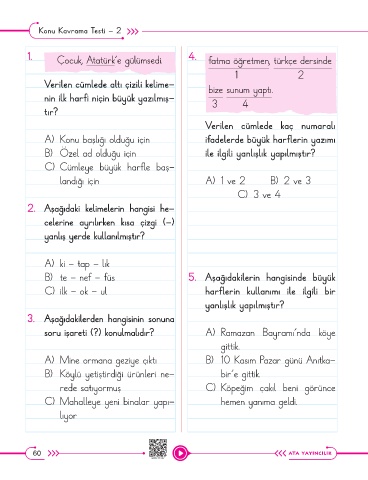 Konu Kavrama Testi - 2
1.
Çocuk, Atatürk'e gülümsedi.
Verilen cümlede altı çizili kelime-
nin ilk harfi niçin büyük yazılmış-
tır?
A) Konu başlığı olduğu için
B) Özel ad olduğu için
C) Cümleye büyük harfle baş-
landığı için
2. Aşağıdaki kelimelerin hangisi he-
celerine ayrılırken kısa çizgi (-)
yanlış yerde kullanılmıştır?
A) ki - tap - lık
B) te - nef - füs
C) ilk - ok - ul
3. Aşağıdakilerden hangisinin sonuna
soru işareti (?) konulmalıdır?
A) Mine ormana geziye çıktı
B) Köylü yetiştirdiği ürünleri ne-
rede satıyormuş
C) Mahalleye yeni binalar yapı-
lıyor
4.
fatma öğretmen, türkçe dersinde
1 2
bize sunum yaptı.
3 4
Verilen cümlede kaç numaralı
ifadelerde büyük harflerin yazımı
ile ilgili yanlışlık yapılmıştır?
A) 1 ve 2 B) 2 ve 3
C) 3 ve 4
5. Aşağıdakilerin hangisinde büyük
harflerin kullanımı ile ilgili bir
yanlışlık yapılmıştır?
A) Ramazan Bayramı'nda köye
gittik.
B) 10 Kasım Pazar günü Anıtka-
bir'e gittik.
C) Köpeğim çakıl beni görünce
hemen yanıma geldi.
60
ATA YAYINCILIK